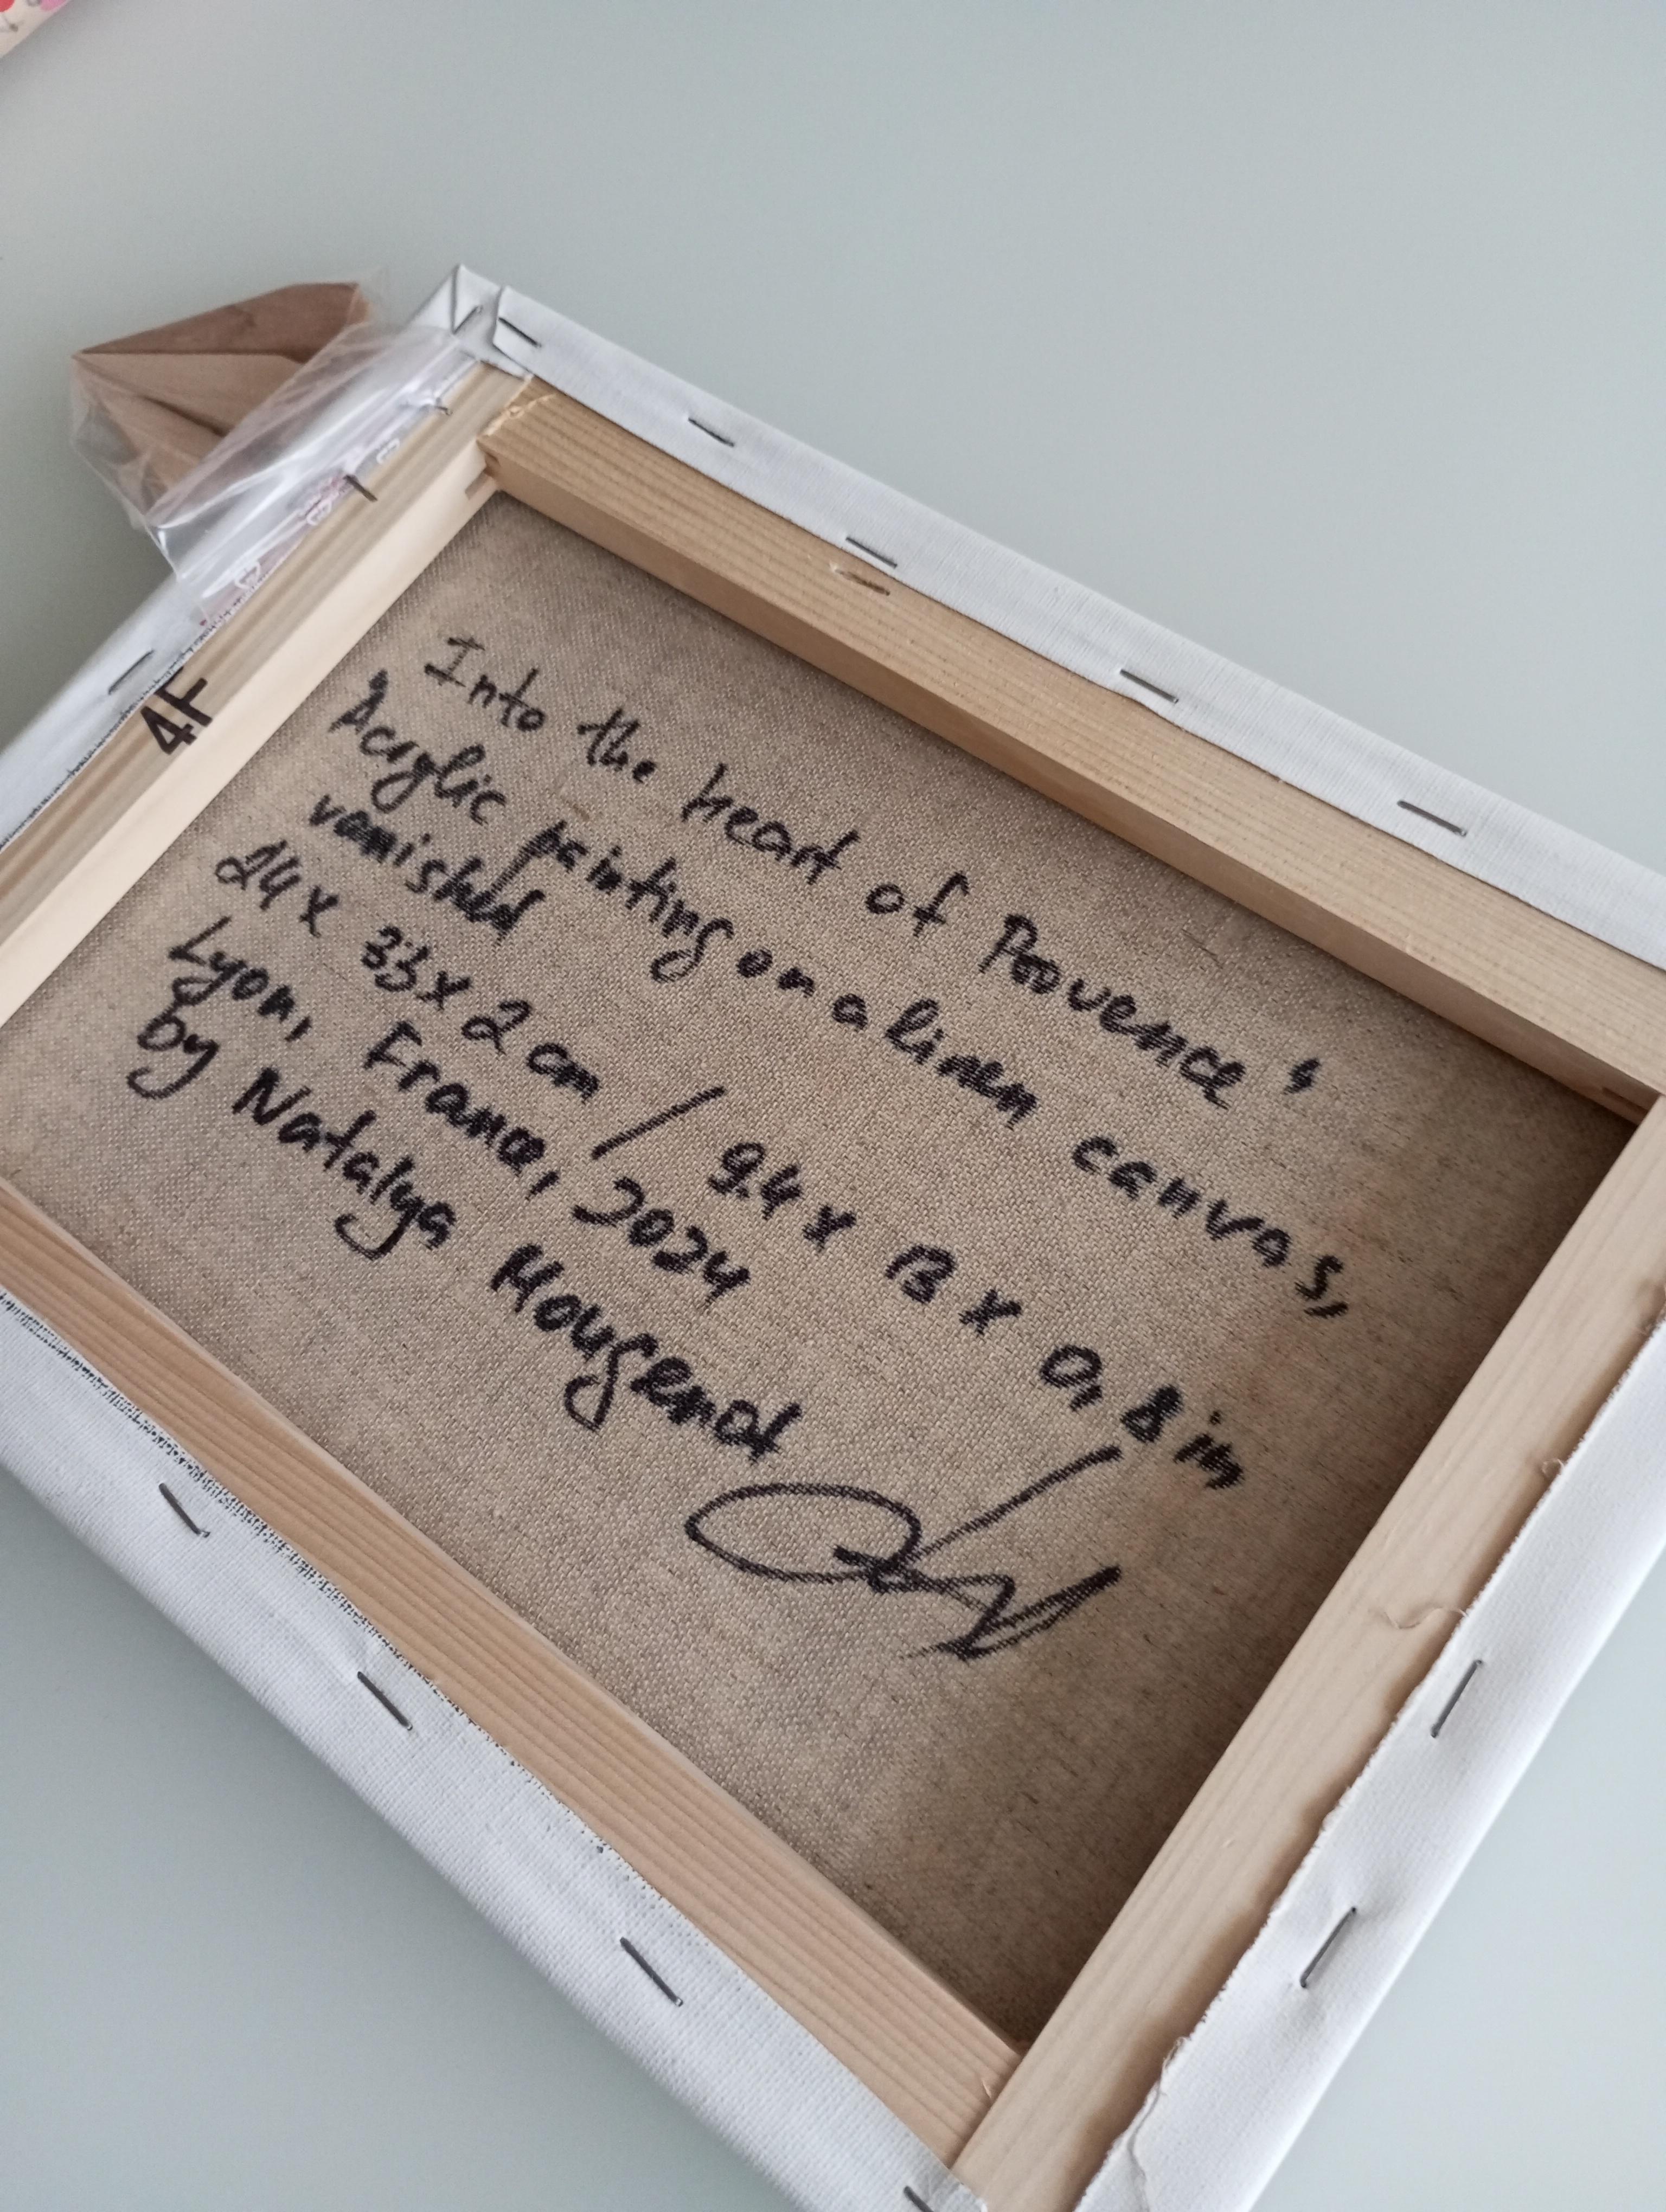 Into the heart of Provence"
Acrylic painting on a linen canvas,
varnished
24 x 33 x 2 cm / 9.4 x 13 x 0,8 in,
Lyon, France, 2024
by Natalya Mougenot
4F